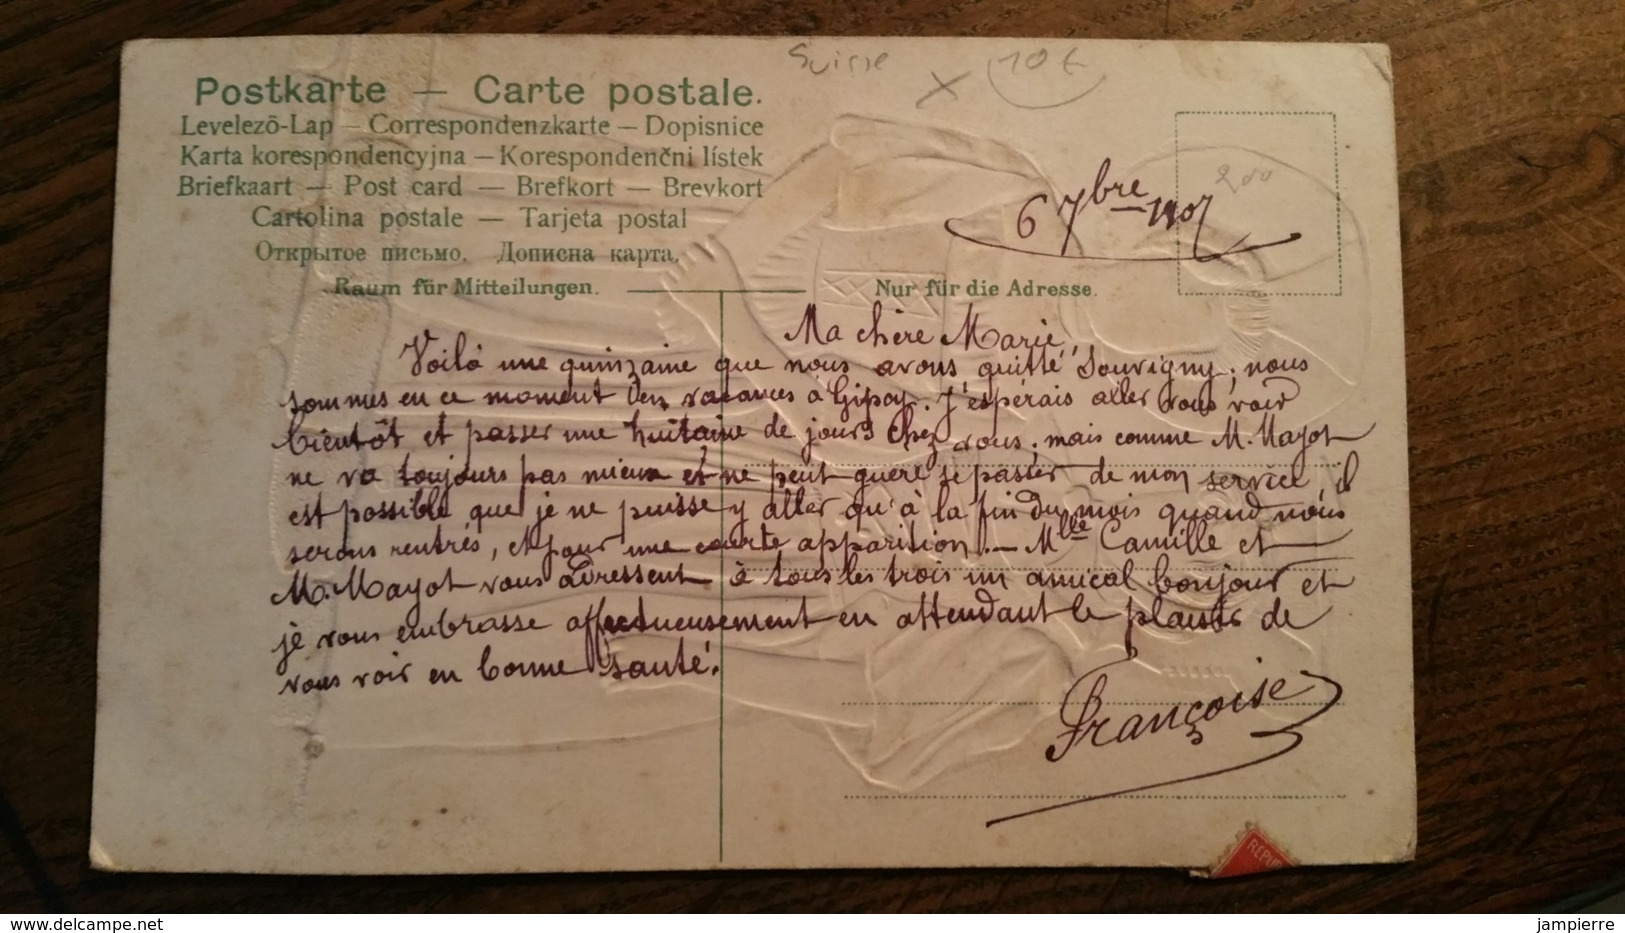 Suisse
10 €
Postkarte — Carte postale.
Levelezõ-Lap — Correspondenzkarte — Dopisnice
Karta korespondencyjna — Korespondenční lístek
Briefkaart — Post card — Brefkort — Brevkort
Cartolina postale — Tarjeta postal
Открытое письмо. Дописна карта.
Raum für Mitteilungen.
Nur für die Adresse.
6 7bre 1907
Ma chère Marie,
Voilà une quinzaine que nous avons quitté Souvigny; nous
sommes en ce moment en vacances à Gipcy. J'espérais aller vous voir
bientôt et passer une huitaine de jours chez vous; mais comme M. Mayot
ne va toujours pas mieux et ne peut guère se passer de mon service, il
est possible que je ne puisse y aller qu'à la fin du mois quand nous
serons rentrés, et pour une courte apparition. — Mlle Camille et
M. Mayot vous adressent à tous les trois un amical bonjour et
je vous embrasse affectueusement en attendant le plaisir de
vous voir en bonne santé.
Françoise
REPUB
www.delcampe.net
jampierre